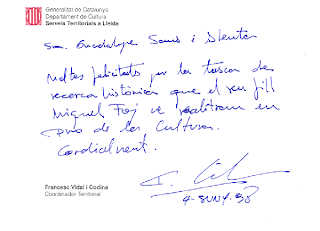 Generalitat de Catalunya
Departament de Cultura
Serveis Territorials a Lleida
Sra. Guadalupe Sans i
Moltes felicitats per la tasca de
recerca històrica que el seu fill
Miguel ve realitzant en
pro de la Cultura.
Cordialment.
Francesc Vidal i Codina
Coordinador Territorial
4-JUNY-98